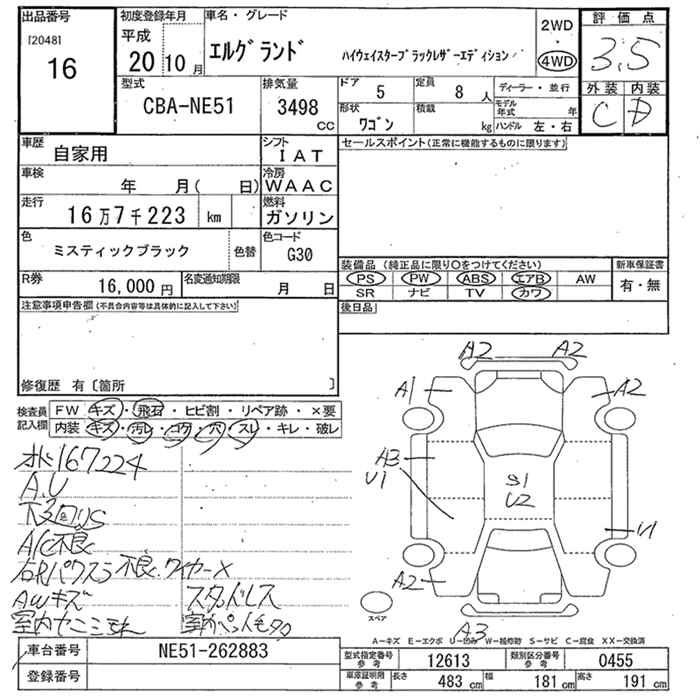 出品番号
[2048]
16
初度登録年月
平成
20 10月
車名・グレード
エルグランド
ハイウェイスターブラックレザーエディション
2WD
・
4WD
評価点
3.5
外装 内装
C D
型式
CBA-NE51
排気量
3498
CC
ドア
5
定員
8人
ディーラー・並行
形状
ワゴン
積載
kg
モデル年式 年
ハンドル 左・右
車歴
自家用
シフト
IAT
セールスポイント(正常に機能するものに限ります)
車検
年 月( 日)
冷房
WAAC
走行
16万7千223 km
燃料
ガソリン
色
ミスティックブラック
色替
色コード
G30
R券
16,000円
名変通知期限
月 日
装備品(純正品に限り○をつけてください)
PS PW ABS エアB AW
SR ナビ TV カワ
新車保証書
有・無
注意事項申告欄(不具合内容等は具体的に記入して下さい)
後日品
修復歴 有〔箇所 〕
検査員記入欄
FW キズ・飛石・ヒビ割・リペア跡・×要
内装 キズ・汚レ・コゲ・穴・スレ・キレ・破レ
オド167224
A.U
A/C不良
右Rパワスラ不良 ワイヤーX
AWキズ
スタッドレス
A2 A2
A1 A2
A3
U1
S1
U2
U1
A2
A3
スペア
A-キズ E-エクボ U-凹み W-補修跡 S-サビ C-腐食 XX-交換済
車台番号
NE51-262883
登録番号
型式指定番号 参考
12613
類別区分番号 参考
0455
車庫証明用 参考
長さ 483 cm 幅 181 cm 高さ 191 cm